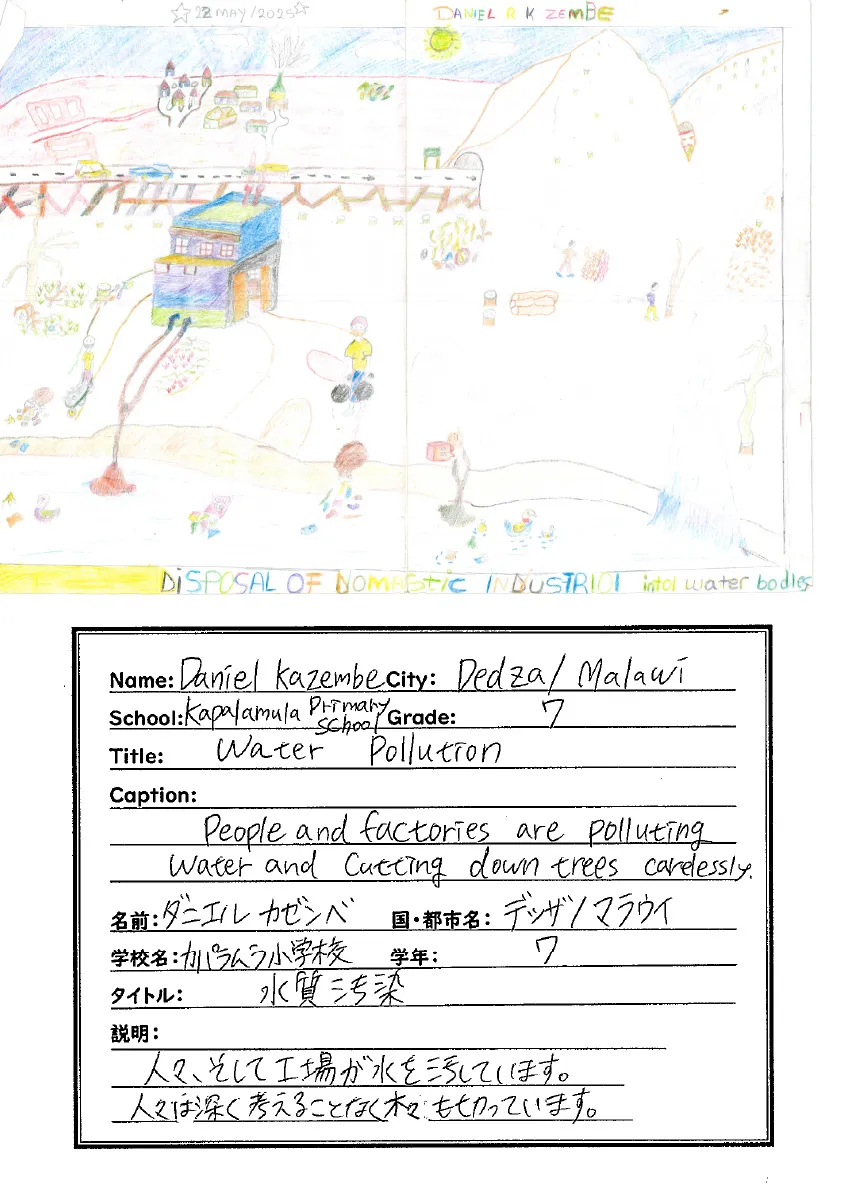 22 MAY/2025
DANIEL R K ZEMBE
DISPOSAL OF DOMASTIC INDUSTRIOI intol water bodies
Name: Daniel Kazembe City: Dedza/Malawi
School: Kapalamula Primary School Grade: 7
Title: Water Pollution
Caption:
People and factories are polluting
Water and Cutting down trees carelessly.
名前: ダニエル カゼンベ 国・都市名: デッザ/マラウイ
学校名: カパラムラ小学校 学年: 7
タイトル: 水質汚染
説明:
人々、そして工場が水を汚しています。
人々は深く考えることなく木々も切っています。